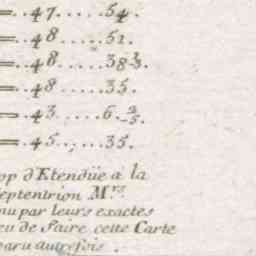 =..47.....54.
=..48.....51.
=..48.....38⅔.
=..48.....35.
=..43.....6.⅖.
=..45.....35.
op d'Etendüe a la
eptentrion Mrs.
nu par leurs exactes
eu de faire cette Carte
paru autrefois.